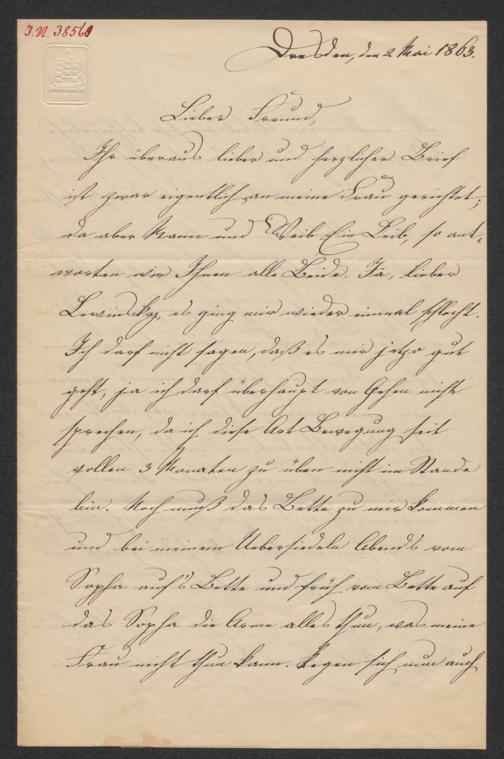 J.N. 38560
PARIS
Dresden, den 2 Mai 1863.
Lieber Freund,
Ihr überaus lieber und herzlicher Brief
ist zwar eigentlich an meine Frau gerichtet;
da aber Mann und Weib Ein Leib, so ant-
worten wir Ihnen alle Beide. Ja, lieber
Lewinsky, es ging mir wieder einmal schlecht.
Ich darf nicht sagen, daß es mir jetzo gut
geht, ja ich darf überhaupt von Gehen nicht
sprechen, da ich diese Art Bewegung seit
vollen 3 Monaten zu üben nicht im Stande
bin. Noch muß das Bette zu mir kommen
und bei meinem Uebersiedeln Abends vom
Sopha auf's Bette und früh vom Bette auf
das Sopha die Arme alles thun, was meine
Frau nicht thun kann. Regen sich nun auch